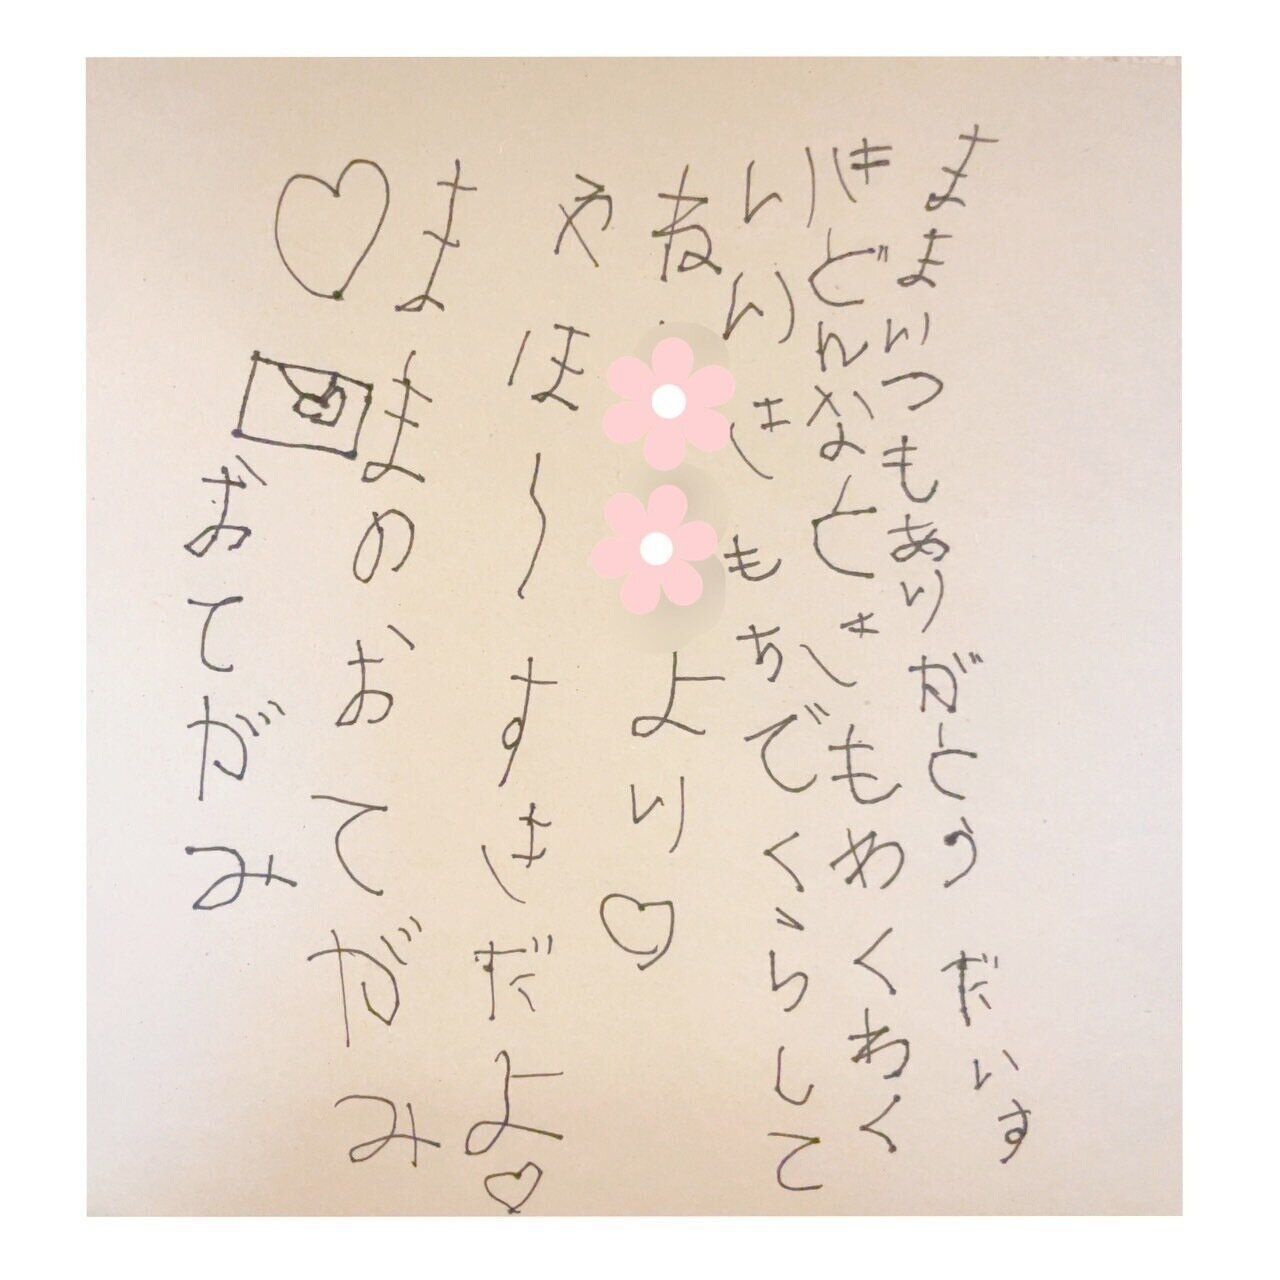 ままいつもありがとう だいす
きどんなときもわくわく
いいきもちでくらして
ね
より♡
やほ〜すきだよ♡
ままのおてがみ
♡おてがみ